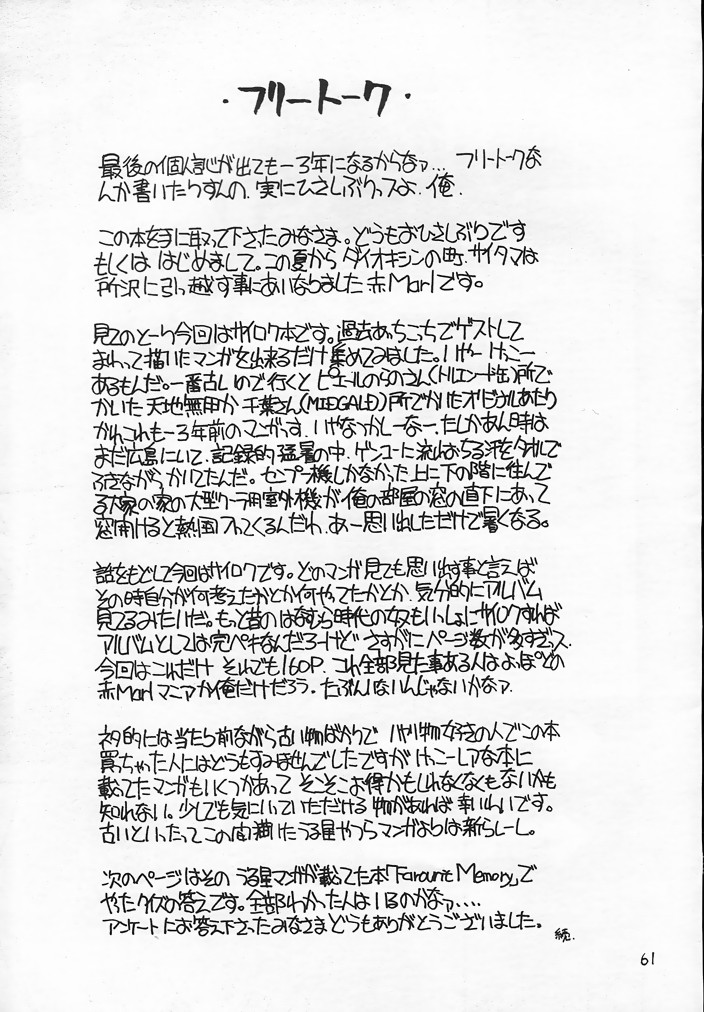 ・フリートーク・
最後の個人誌が出てもー3年になるからなァ… フリートークな
んか書いたりすんの、実にひさしぶりっスよ、俺.
この本を手に取って下さったみなさま。どうもおひさしぶりです
もしくは はじめまして。この夏から ダイオキシンの町、サイタマは
所沢に引っ越す事にあいなりました赤Marlです。
見てのとーり今回はサイロク本です。過去あっちこっちでゲストして
まわって描いたマンガを出来るだけ集めてみました。いやーけっこー
あるもんだ。一番古いので行くと ピエールのらのさん(トルエンド缶)所で
かいた 天地無用か 千葉さん(MIDGALD)所でかいたオリジナルあたり
かな これも一3年前のマンガっす. いやなつかしーなー. たしかあん時は
まだ広島にいて、記録的猛暑の中、ゲンコーに流れおちる汗をタオルで
ふきながら かいてたんだ。センプー機しかなかった上に下の階に住んで
る大家の家の大型クーラー用室外機が俺の部屋の窓の直下にあって
窓開けると熱風入ってくるんだわ、あー思い出しただけで暑くなる。
話をもどして今回はサイロクです。どのマンガ見ても思い出す事と言えば
その時自分が何考えたかとか何やってたかとか、気分的にアルバム
見てるみたいだ。もっと昔のはなむら時代の奴もいっしょにサイロクすれば
アルバムとしては完ペキなんだろーけど さすがにページ数が多すぎっス
今回はこれだけ それでも160P. これ全部見た事ある人はよっぽどの
赤Marlマニアか俺だけだろう. たぶんいないんじゃないかなァ.
ネタ的には当たり前ながら古い物ばかりで ハヤリ物好きの人でこの本
買っちゃった人にはどうもすみませんでしたですが けっこーレアな本に
載ってたマンガもいくつかあって そこそこお得かもしれなくなくもないかも
知れない。少しでも気にいっていただける物があれば 幸いです。
古いといったって この間描いたうる星やつらマンガよりは新らしーし。
次のページはその うる星マンガが載ってた本「Favourit Memory」で
やったクイズの答えです。全部わかった人はいるのかなァ....
アンケートにお答え下さったみなさま どうもありがとうございました。
続.
61